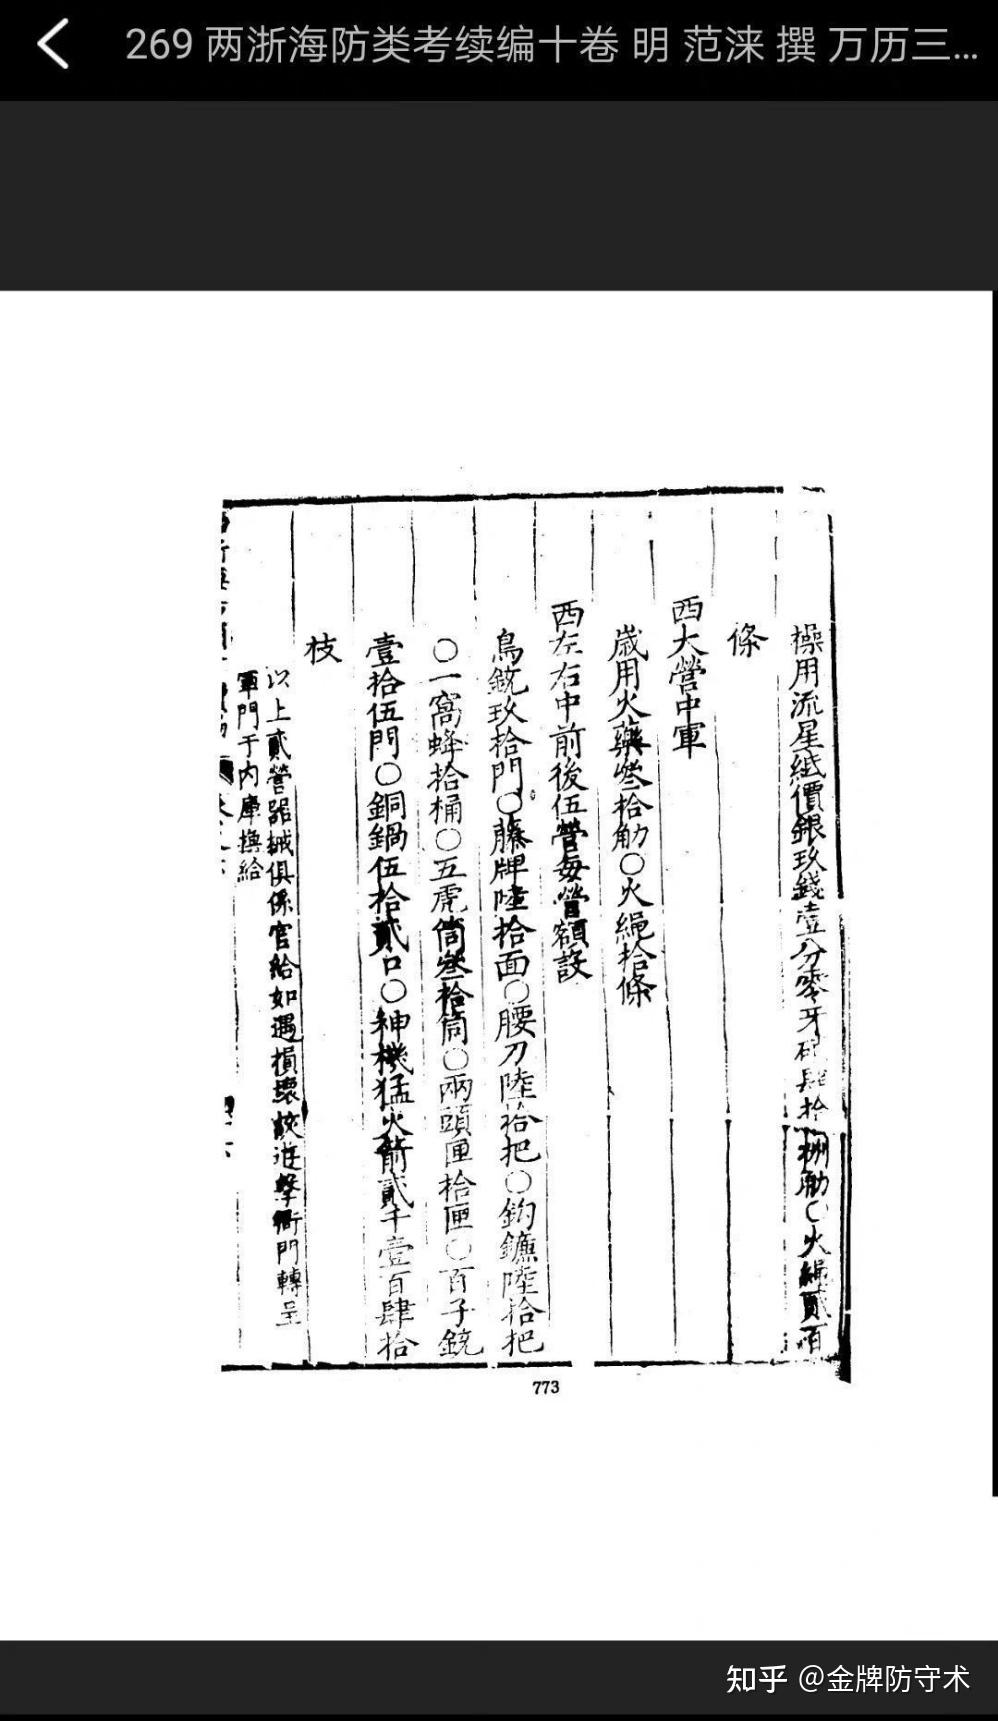 269 两浙海防类考续编十卷 明 范涞 撰 万历三…
操用流星紙價銀玖錢壹分零牙硝肆拾捌觔○火繩貳百
條
西大營中軍
歲用火藥叁拾觔○火繩拾條
西左右中前後伍營每營額設
鳥銃玖拾門○籐牌陸拾面○腰刀陸拾把○鈎鐮陸拾把
○一窩蜂拾桶○五虎筒叁拾筒○兩頭匣拾匣○百子銃
壹拾伍門○銅鍋伍拾貳口○神機猛火箭貳千壹百肆拾
枝
以上貳營器械俱係官給如遇損壞該遊擊衙門轉呈
軍門于內庫換給
773
知乎 @金牌防守术